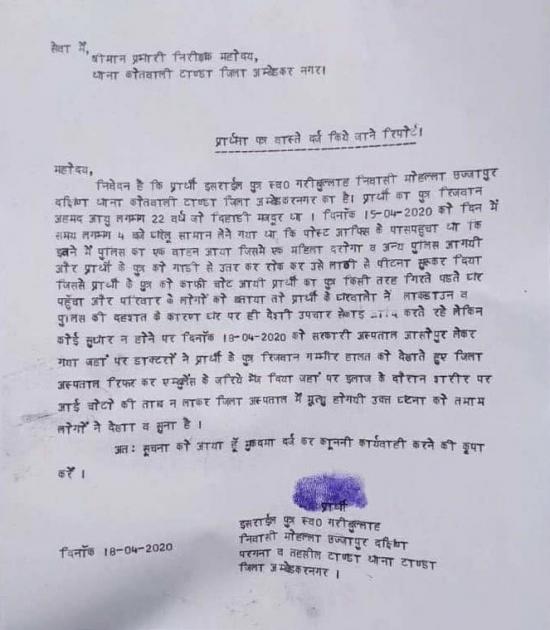 सेवा में,
श्रीमान प्रभारी निरीक्षक महोदय,
थाना कोतवाली टाण्डा जिला अम्बेडकर नगर।
प्रार्थना पत्र वास्ते दर्ज किये जाने रिपोर्ट।
महोदय,
निवेदन है कि प्रार्थी इसराईल पुत्र स्व0 गरीबुल्लाह निवासी मोहल्ला छज्जापुर
दक्षिण थाना कोतवाली टाण्डा जिला अम्बेडकरनगर का है। प्रार्थी का पुत्र रिजवान
अहमद आयु लगभग 22 वर्ष जो दिहाडी मजदूर था । दिनाँक 15-04-2020 को दिन में
समय लगभग 4 बजे घरेलू सामान लेने गया था कि पोस्ट आफिस के पास पहुंचा था कि
इतने में पुलिस का एक वाहन आया जिसमें एक महिला दरोगा व अन्य पुलिस आगयी
और प्रार्थी के पुत्र को गाडी से उतर कर रोक कर उसे लाठी से पीटना सुरू कर दिया
जिससे प्रार्थी के पुत्र को काफी चोट आयी प्रार्थी का पुत्र किसी तरह गिरते पडते घर
पहुँचा और परिवार के लोगों को बताया तो प्रार्थी के घरवालो ने लाकडाउन व
पुलिस की दहशत के कारण घर पर ही देशी उपचार करते रहे लेकिन
कोई सुधार न होने पर दिनाँक 18-04-2020 को सरकारी अस्पताल आसोपुर लेकर
गया जहां पर डाक्टरों ने प्रार्थी के पुत्र रिजवान गम्भीर हालत को देखते हुए जिला
अस्पताल रिफर कर एम्बुलेंस के जरिये भेज दिया जहां पर इलाज के दौरान शरीर पर
आई चोटों की ताब न लाकर जिला अस्पताल में मृत्यु होगयी उक्त घटना को तमाम
लोगों ने देखा व सुना है ।
अतः सूचना को आया हूँ मुकदमा दर्ज कर कानूनी कार्यवाही करने की कृपा
करें ।
प्रार्थी
इसराईल पुत्र स्व0 गरीबुल्लाह
निवासी मोहल्ला छज्जापुर दक्षिण
परगना व तहसील टाण्डा थाना टाण्डा
जिला अम्बेडकरनगर ।
दिनाँक 18-04-2020